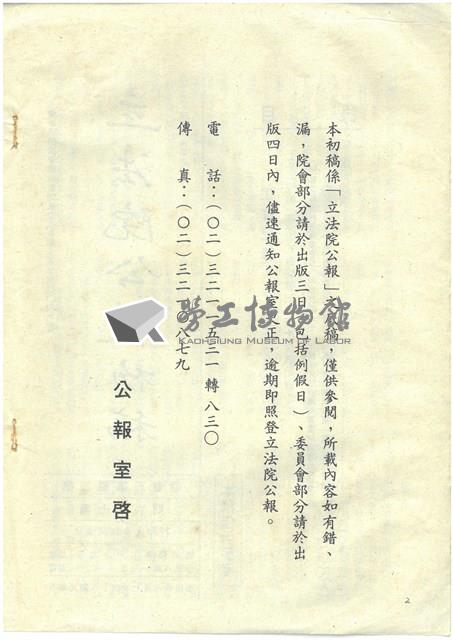 本初稿係「立法院公報」之原稿，僅供參閱，所載內容如有錯、
漏，院會部分請於出版三日（包括例假日）、委員會部分請於出
版四日內，儘速通知公報室更正，逾期即照登立法院公報。
電　話：（〇二）三二一一五三一轉八三〇
傳　真：（〇二）三二一〇八七九
公報室啓
勞工博物館
KAOHSIUNG MUSEUM OF LABOR
2